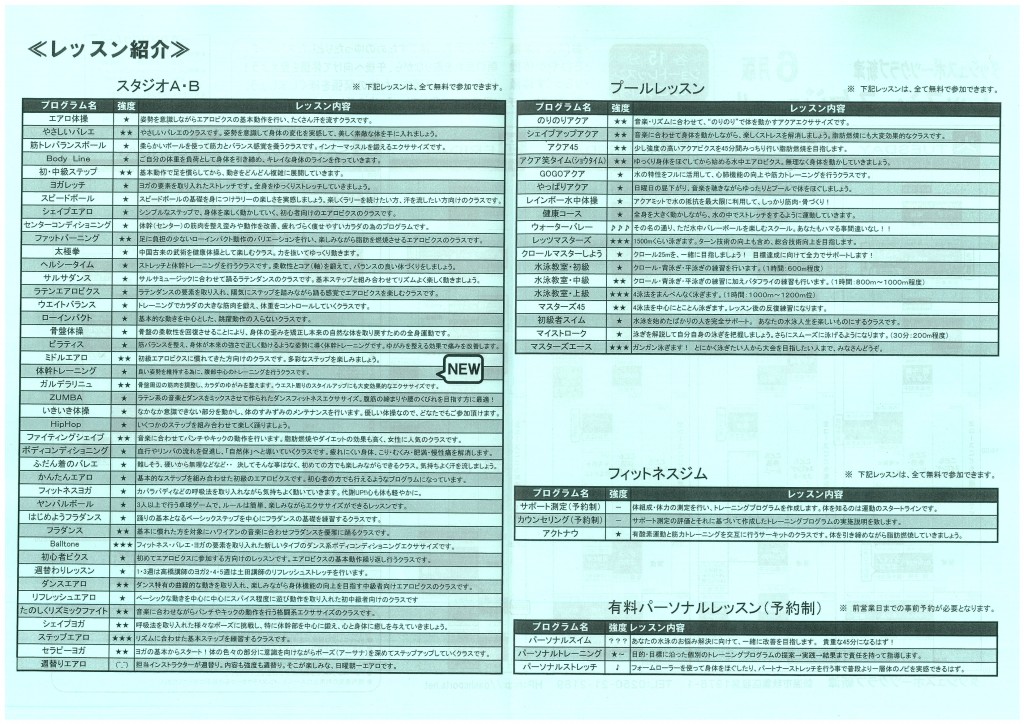 ≪レッスン紹介≫
スタジオA・B
※ 下記レッスンは、全て無料で参加できます。
プログラム名 強度 レッスン内容
エアロ体操 ★ 姿勢を意識しながらエアロビクスの基本動作を行い、たくさん汗を流すクラスです。
やさしいバレエ ★★ やさしいバレエのクラスです。姿勢を意識して身体の変化を実感して、美しく素敵な体を手に入れましょう。
筋トレバランスボール ★ 柔らかいボールを使って筋力とバランス感覚を養うクラスです。インナーマッスルを鍛えるエクササイズです。
Body Line ★ ご自分の体重を負荷として身体を引き締め、キレイな身体のラインを作っていきます。
初・中級ステップ ★★ 基本動作で足を慣らしてから、動きをどんどん複雑に展開していきます。
ヨガレッチ ★ ヨガの要素を取り入れたストレッチです。全身をゆっくりストレッチしていきましょう。
スピードボール ★ スピードボールの基礎を身につけラリーの楽しさを実感しましょう。楽しくラリーを続けたい方、汗を流したい方向けのクラスです。
シェイプエアロ ★ シンプルなステップで、身体を楽しく動かしていく、初心者向けのエアロビクスのクラスです。
センターコンディショニング ★ 体幹(センター)の筋肉を整え歪みや動作を改善、疲れづらく痩せやすいカラダの為のプログラムです。
ファットバーニング ★★ 足に負担の少ないローインパクト動作のバリエーションを行い、楽しみながら脂肪を燃焼させるエアロビクスのクラスです。
太極拳 ★ 中国古来の武術を健康体操として楽しむクラス。力を抜いてゆっくり動きます。
ヘルシータイム ★ ストレッチと体幹トレーニングを行うクラスです。柔軟性とコア(軸)を鍛えて、バランスの良い体づくりをしましょう。
サルサダンス ★ サルサミュージックに合わせて踊るラテンダンスのクラスです。基本ステップと組み合わせてリズムよく楽しく動きましょう。
ラテンエアロビクス ★ ラテンダンスの要素を取り入れ、陽気にステップを踏みながら踊る感覚でエアロビクスを楽しむクラスです。
ウエイトバランス ★ トレーニングでカラダの大きな筋肉を鍛え、体重をコントロールしていくクラスです。
ローインパクト ★ 基本的な動きを中心とした、跳躍動作の入らないクラスです。
骨盤体操 ★ 骨盤の柔軟性を回復させることにより、身体の歪みを矯正し本来の自然な体を取り戻すための全身運動です。
ピラティス ★ 筋バランスを整え、身体が本来の強さで正しく動けるような姿勢に導く体幹トレーニングです。ゆがみを整える効果で痛みを改善します。
ミドルエアロ ★★ 初級エアロビクスに慣れてきた方向けのクラスです。多彩なステップを楽しみましょう。
体幹トレーニング ★ 良い姿勢を維持する為に、腹部中心のトレーニングを行うクラスです。
NEW
ガルデラリニュ ★★ 骨盤周辺の筋肉を調整し、カラダのゆがみを整えます。ウエスト周りのスタイルアップにも大変効果的なエクササイズです。
ZUMBA ★ ラテン系の音楽とダンスをミックスさせて作られたダンスフィットネスエクササイズ。腹筋の締まりや腰のくびれを目指す方に最適!
いきいき体操 ★ なかなか意識できない部分を動かし、体のすみずみのメンテナンスを行います。優しい体操なので、どなたでもご参加頂けます。
HipHop ★ いくつかのステップを組み合わせて楽しく踊りましょう。
ファイティングシェイプ ★★ 音楽に合わせてパンチやキックの動作を行います。脂肪燃焼やダイエットの効果も高く、女性に人気のクラスです。
ボディコンディショニング ★ 血行やリンパの流れを促進し、「自然体」へと導いていくクラスです。疲れにくい身体、こり・むくみ・肥満・慢性痛を解消します。
ふだん着のバレエ ★ 難しそう、硬いから無理などなど・・ 決してそんな事はなく、初めての方でも楽しみながらできるクラス。気持ちよく汗を流しましょう。
かんたんエアロ ★ 基本的なステップを組み合わせた初級のエアロビクスです。初心者の方でも行えるようなプログラムになっています。
フィットネスヨガ ★ カパラバディなどの呼吸法を取り入れながら気持ちよく動いていきます。代謝UP!!心も体も軽やかに。
ヤンバルボール ★ 3人以上で行う卓球ゲームで、ルールは簡単、楽しみながらエクササイズができるレッスンです。
はじめようフラダンス ★ 踊りの基本となるベーシックステップを中心にフラダンスの基礎を練習するクラスです。
フラダンス ★★ 基本に慣れた方を対象にハワイアンの音楽に合わせフラダンスを優雅に踊るクラスです。
Balltone ★★★ フィットネス・バレエ・ヨガの要素を取り入れた新しいタイプのダンス系ボディコンディショニングエクササイズです。
初心者ビクス ★ 初めてエアロビクスに参加する方向けのレッスンです。エアロビクスの基本動作繰り返し行うクラスです。
週替わりレッスン ★ 1・3週は高橋講師のヨガ2・4・5週は土田講師のリフレッシュストレッチを行います。
ダンスエアロ ★★ ダンス特有の曲線的な動きを取り入れ、楽しみながら身体機能の向上を目指す中級者向けエアロビクスのクラスです。
リフレッシュエアロ ★ ベーシックな動きを中心に中心にスパイス程度に遊び動作を取り入れた初中級者向けのクラスです
たのしくリズミックファイト ★★ 音楽に合わせながらパンチやキックの動作を行う格闘系エクササイズのクラスです。
シェイプヨガ ★★ 呼吸法を取り入れた様々なポーズに挑戦し、特に体幹部を中心に鍛え、心と身体に癒しを与えていきましょう。
ステップエアロ ★★★ リズムに合わせた基本ステップを練習するクラスです。
セラピーヨガ ★★ ヨガの基本からスタート!体の色々の部分に意識を向けながらポーズ(アーサナ)を深めてステップアップしていくクラスです。
週替りエアロ 担当インストラクターが週替り。内容も強度も週替り。そこが楽しみな、日曜朝一エアロです。
プールレッスン
※ 下記レッスンは、全て無料で参加できます。
プログラム名 強度 レッスン内容
のりのりアクア ★★ 音楽・リズムに合わせて、“のりのり”で体を動かすアクアエクササイズです。
シェイプアップアクア ★★ 音楽に合わせて身体を動かしながら、楽しくストレスを解消しましょう。脂肪燃焼にも大変効果的なクラスです。
アクア45 ★★ 少し強度の高いアクアビクスを45分間みっちり行い脂肪燃焼を目指します。
アクア笑タイム(ショウタイム) ★★ ゆっくり身体をほぐしてから始める水中エアロビクス。無理なく身体を動かしていきましょう。
GOGOアクア ★ 水の特性をフルに活用して、心肺機能の向上や筋力トレーニングを行うクラスです。
やっぱりアクア ★ 日曜日の昼下がり、音楽を聴きながらゆったりとプールで体をほぐしましょう。
レインボー水中体操 ★ アクアミットで水の抵抗を最大限に利用して、しっかり筋肉・骨づくり!
健康コース ★ 全身を大きく動かしながら、水の中でストレッチをするように運動していきます。
ウォーターバレー ♪♪♪ その名の通り、ただ水中バレーボールを楽しむスクール。あなたもハマる事間違いなし!!
レッツマスターズ ★★★ 1500mくらい泳ぎます。ターン技術の向上も含め、総合技術向上を目指します。
クロールマスターしよう ★ クロール25mを、一緒に目指しましょう! 目標達成に向けて全力でサポートします!
水泳教室・初級 ★ クロール・背泳ぎ・平泳ぎの練習を行います。(1時間:600m程度)
水泳教室・中級 ★★ クロール・背泳ぎ・平泳ぎの練習に加えバタフライの練習も行います。(1時間:800m～1000m程度)
水泳教室・上級 ★★★ 4泳法をまんべんなく泳ぎます。(1時間:1000m～1200m位)
マスターズ45 ★★ 4泳法を中心にとことん泳ぎます。レッスン後の反復練習になります。
初級者スイム ★ 水泳を始めたばかりの人を完全サポート。あなたの水泳人生を楽しいものにするクラスです。
マイストローク ★ 泳ぎを解説して自分自身の泳ぎを把握しましょう。さらにスムーズに泳げるようになります。(30分:200m程度)
マスターズエース ★★★ ガンガン泳ぎます! とにかく泳ぎたい人から大会を目指したい人まで、みなさんどうぞ。
フィットネスジム
※ 下記レッスンは、全て無料で参加できます。
プログラム名 強度 レッスン内容
サポート測定(予約制) － 体組成・体力の測定を行い、トレーニングプログラムを作成します。体を知るのは運動のスタートラインです。
カウンセリング(予約制) － サポート測定の評価とそれに基づいて作成したトレーニングプログラムの実施説明を致します。
アクトナウ ★ 有酸素運動と筋力トレーニングを交互に行うサーキットのクラスです。体を引き締めながら脂肪燃焼していきましょう。
有料パーソナルレッスン(予約制) ※ 前営業日までの事前予約が必要となります。
プログラム名 強度 レッスン内容
パーソナルスイム ??? あなたの水泳のお悩み解決に向けて、一緒に改善を目指します。 貴重な45分になるはず!
パーソナルトレーニング ★～ 目的・目標に沿った個別のトレーニングプログラムの提案→実践→結果まで責任を持って指導します。
パーソナルストレッチ ♪ フォームローラーを使って身体をほぐしたり、パートナーストレッチを行う事で普段より一層体のノビを実感できるはず。